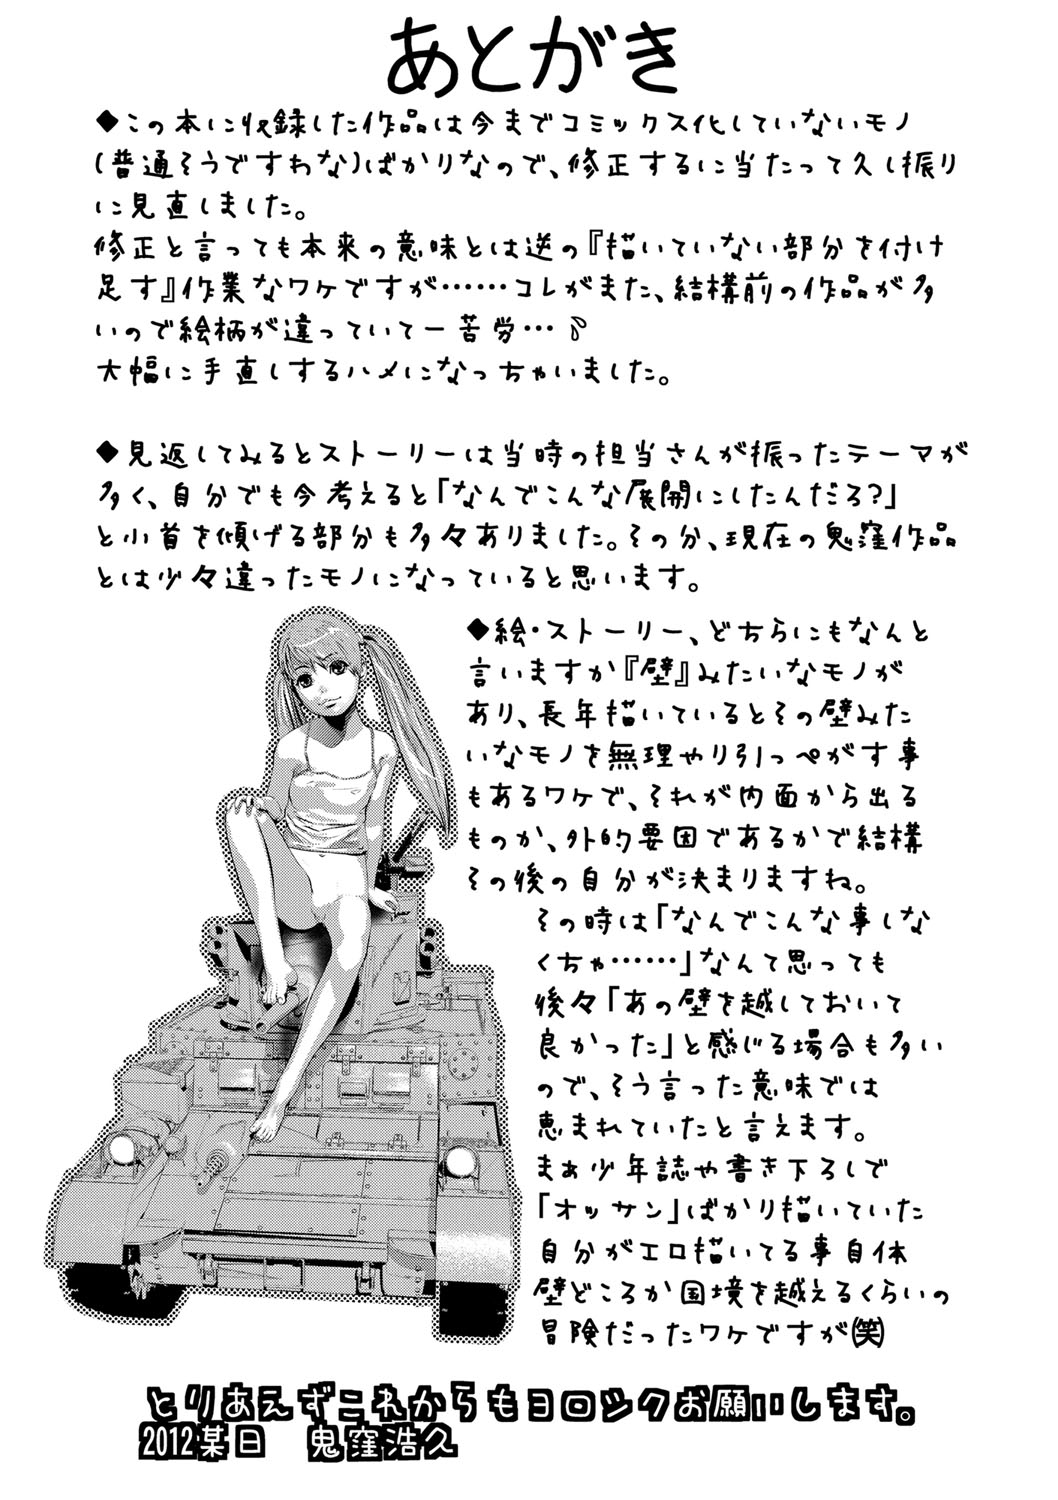 あとがき
◆この本に収録した作品は今までコミックス化していないモノ
(普通そうですわな)ばかりなので、修正するに当たって久し振り
に見直しました。
修正と言っても本来の意味とは逆の『描いていない部分を付け
足す』作業なワケですが……コレがまた、結構前の作品が多
いので絵柄が違っていて一苦労…
大幅に手直しするハメになっちゃいました。
◆見返してみるとストーリーは当時の担当さんが振ったテーマが
多く、自分でも今考えると「なんでこんな展開にしたんだろ?」
と小首を傾げる部分も多々ありました。その分、現在の鬼窪作品
とは少々違ったモノになっていると思います。
◆絵・ストーリー、どちらにもなんと
言いますか『壁』みたいなモノが
あり、長年描いているとその壁みた
いなモノを無理やり引っぺがす事
もあるワケで、それが内面から出る
ものか、外的要因であるかで結構
その後の自分が決まりますね。
その時は「なんでこんな事しな
くちゃ……」なんて思っても
後々「あの壁を越しておいて
良かった」と感じる場合も多い
ので、そう言った意味では
恵まれていたと言えます。
まぁ少年誌や書き下ろしで
「オッサン」ばかり描いていた
自分がエロ描いてる事自体
壁どころか国境を越えるくらいの
冒険だったワケですが(笑)
とりあえずこれからもヨロシクお願いします。
2012某日 鬼窪浩久